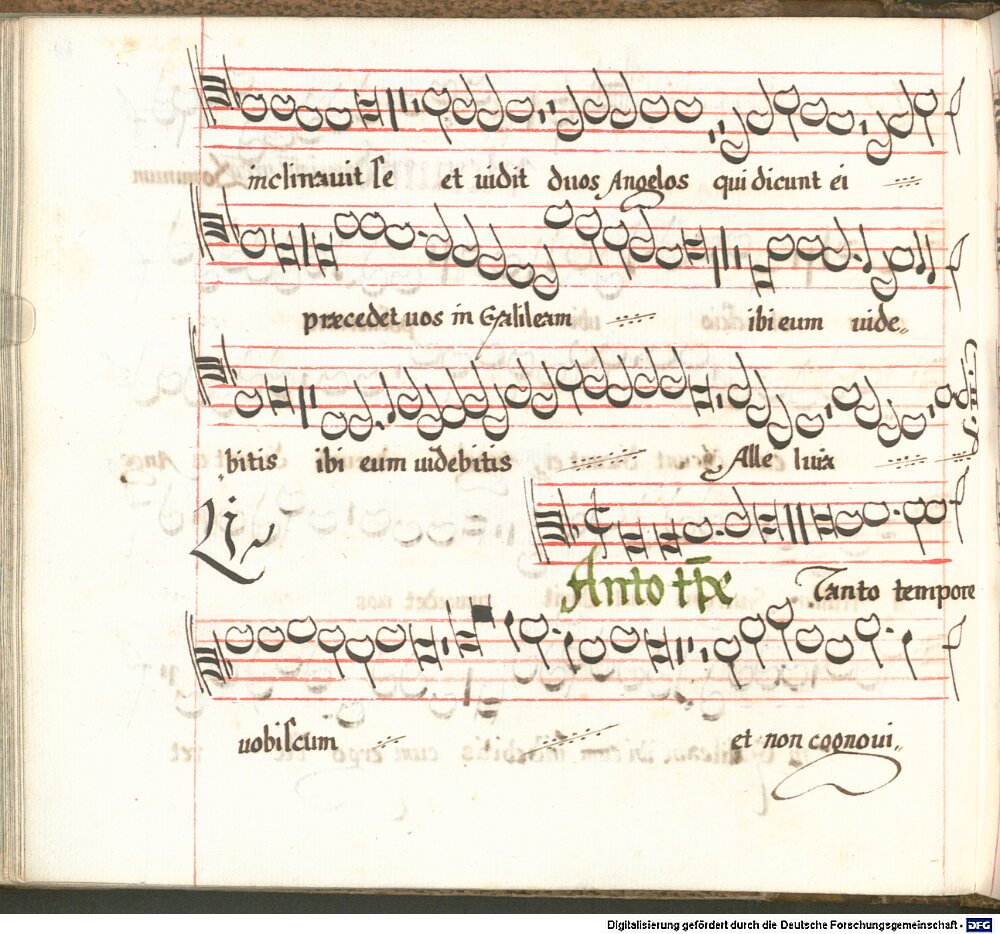 inclinauit se et uidit duos Angelos qui dicunt ei
præcedet uos in Galileam ibi eum uide„
bitis ibi eum uidebitis Alle luia
Lij
Tanto tempore
uobiscum et non cognoui„
Digitalisierung gefördert durch die Deutsche Forschungsgemeinschaft - DFG